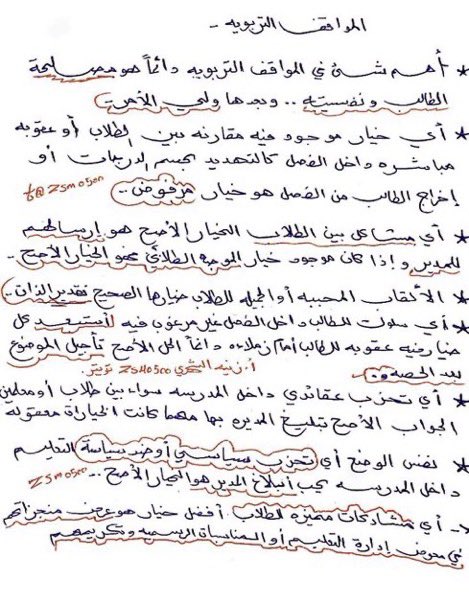 المواقف التربويه -
* أهم شئ في المواقف التربويه دائماً هو مصلحة
الطالب ونفسيته .. وبعدها ولي الأمر -
* أي خيار موجود فيه مقارنه بين الطلاب أو عقوبه
مباشره داخل الفصل كالتهديد بحسم الدرجات أو
إخراج الطالب من الفصل هو خيار مرفوض .. t@zsm0500
* أي مشاكل بين الطلاب الخيار الأصح هو إرسالهم
للمدير و إذا كان موجود خيار الموجه الطلابي فهو الخيار الأصح -
* الألقاب المحببه أو الجميله للطلاب خيارها الصحيح تقدير الذات ..
* أي سلوك للطالب داخل الفصل غير مرغوب فيه استبعد كل
خيار فيه عقوبه للطالب أمام زملاءه دائماً الحل الأصح تأجيل الموضوع
بعد الحصه .. أ. زينه الشهري zsm0500 تويتر
* أي تحزب عقائدي داخل المدرسه سواء بين طلاب أو معلمين
الجواب الأصح تبليغ المدير بها مهما كانت الخيارات معقوله
* نفس الوضع أي تحزب سياسي أو ضد سياسة التعليم
داخل المدرسه يجب إبلاغ المدير هو الخيار الأصح .. zsm0500
* - أي مشاركات مميزه للطلاب أفضل خيار هو عرض منجزاتهم
في معرض إدارة التعليم أو المناسبات الرسميه وتكريمهم